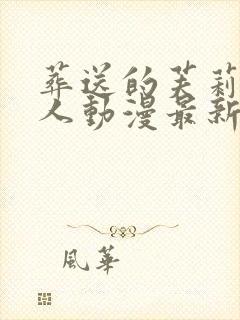 葬送的芙莉
人動漫最新
風華